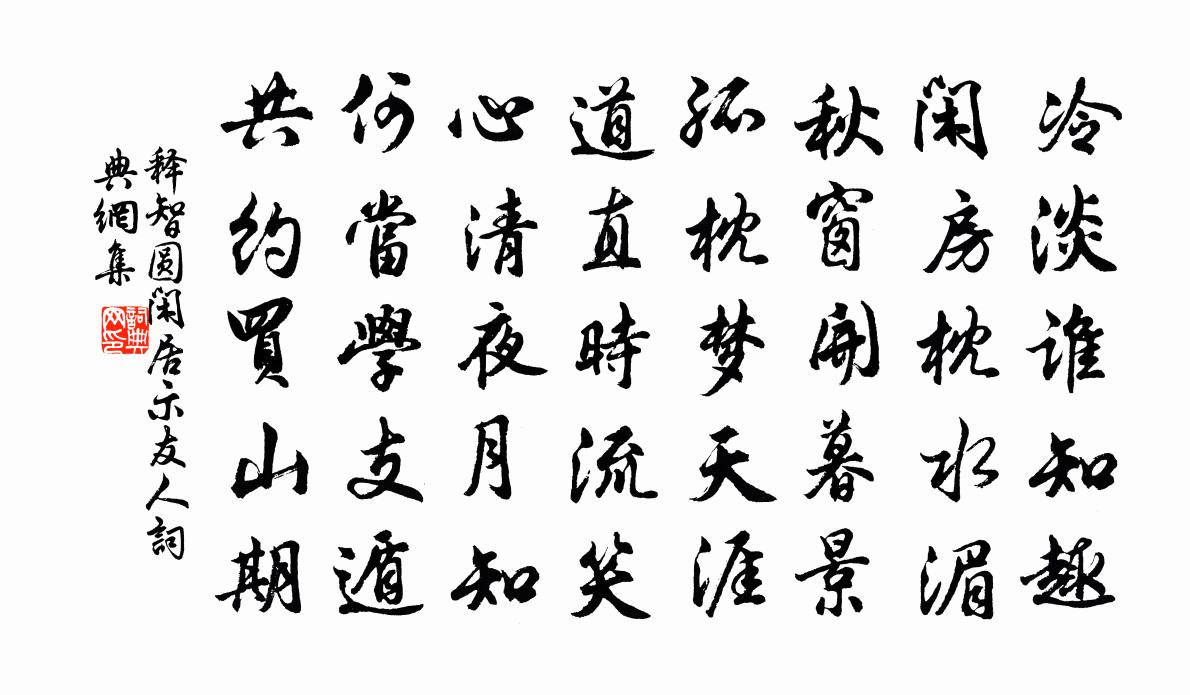 冷淡谁知趣
闲房枕水湄
秋窗開暮景
孤枕梦天涯
道直時流笑
心清夜月知
何當學支遁
共约買山期
释智圆闲居示友人詞
典網集
詞典网印